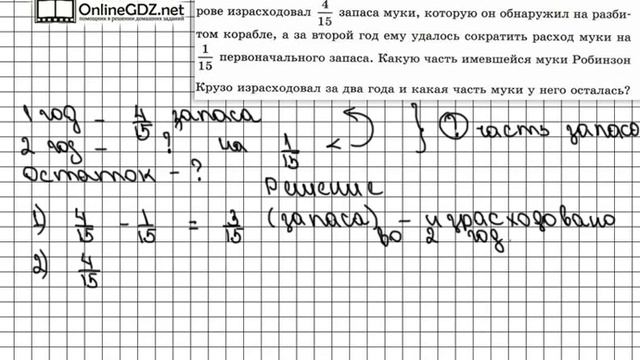 OnlineGDZ.net
помощник в решении домашних заданий
рове израсходовал 4/15 запаса муки, которую он обнаружил на разби-
том корабле, а за второй год ему удалось сократить расход муки на
1/15 первоначального запаса. Какую часть имевшейся муки Робинзон
Крузо израсходовал за два года и какая часть муки у него осталась?
1 год – 4/15 запаса
2 год – ? на 1/15 < } ? часть запаса
Остаток – ?
Решение
1) 4/15 – 1/15 = 3/15 (запаса) – израсходовано
во 2 год.
2) 4/15